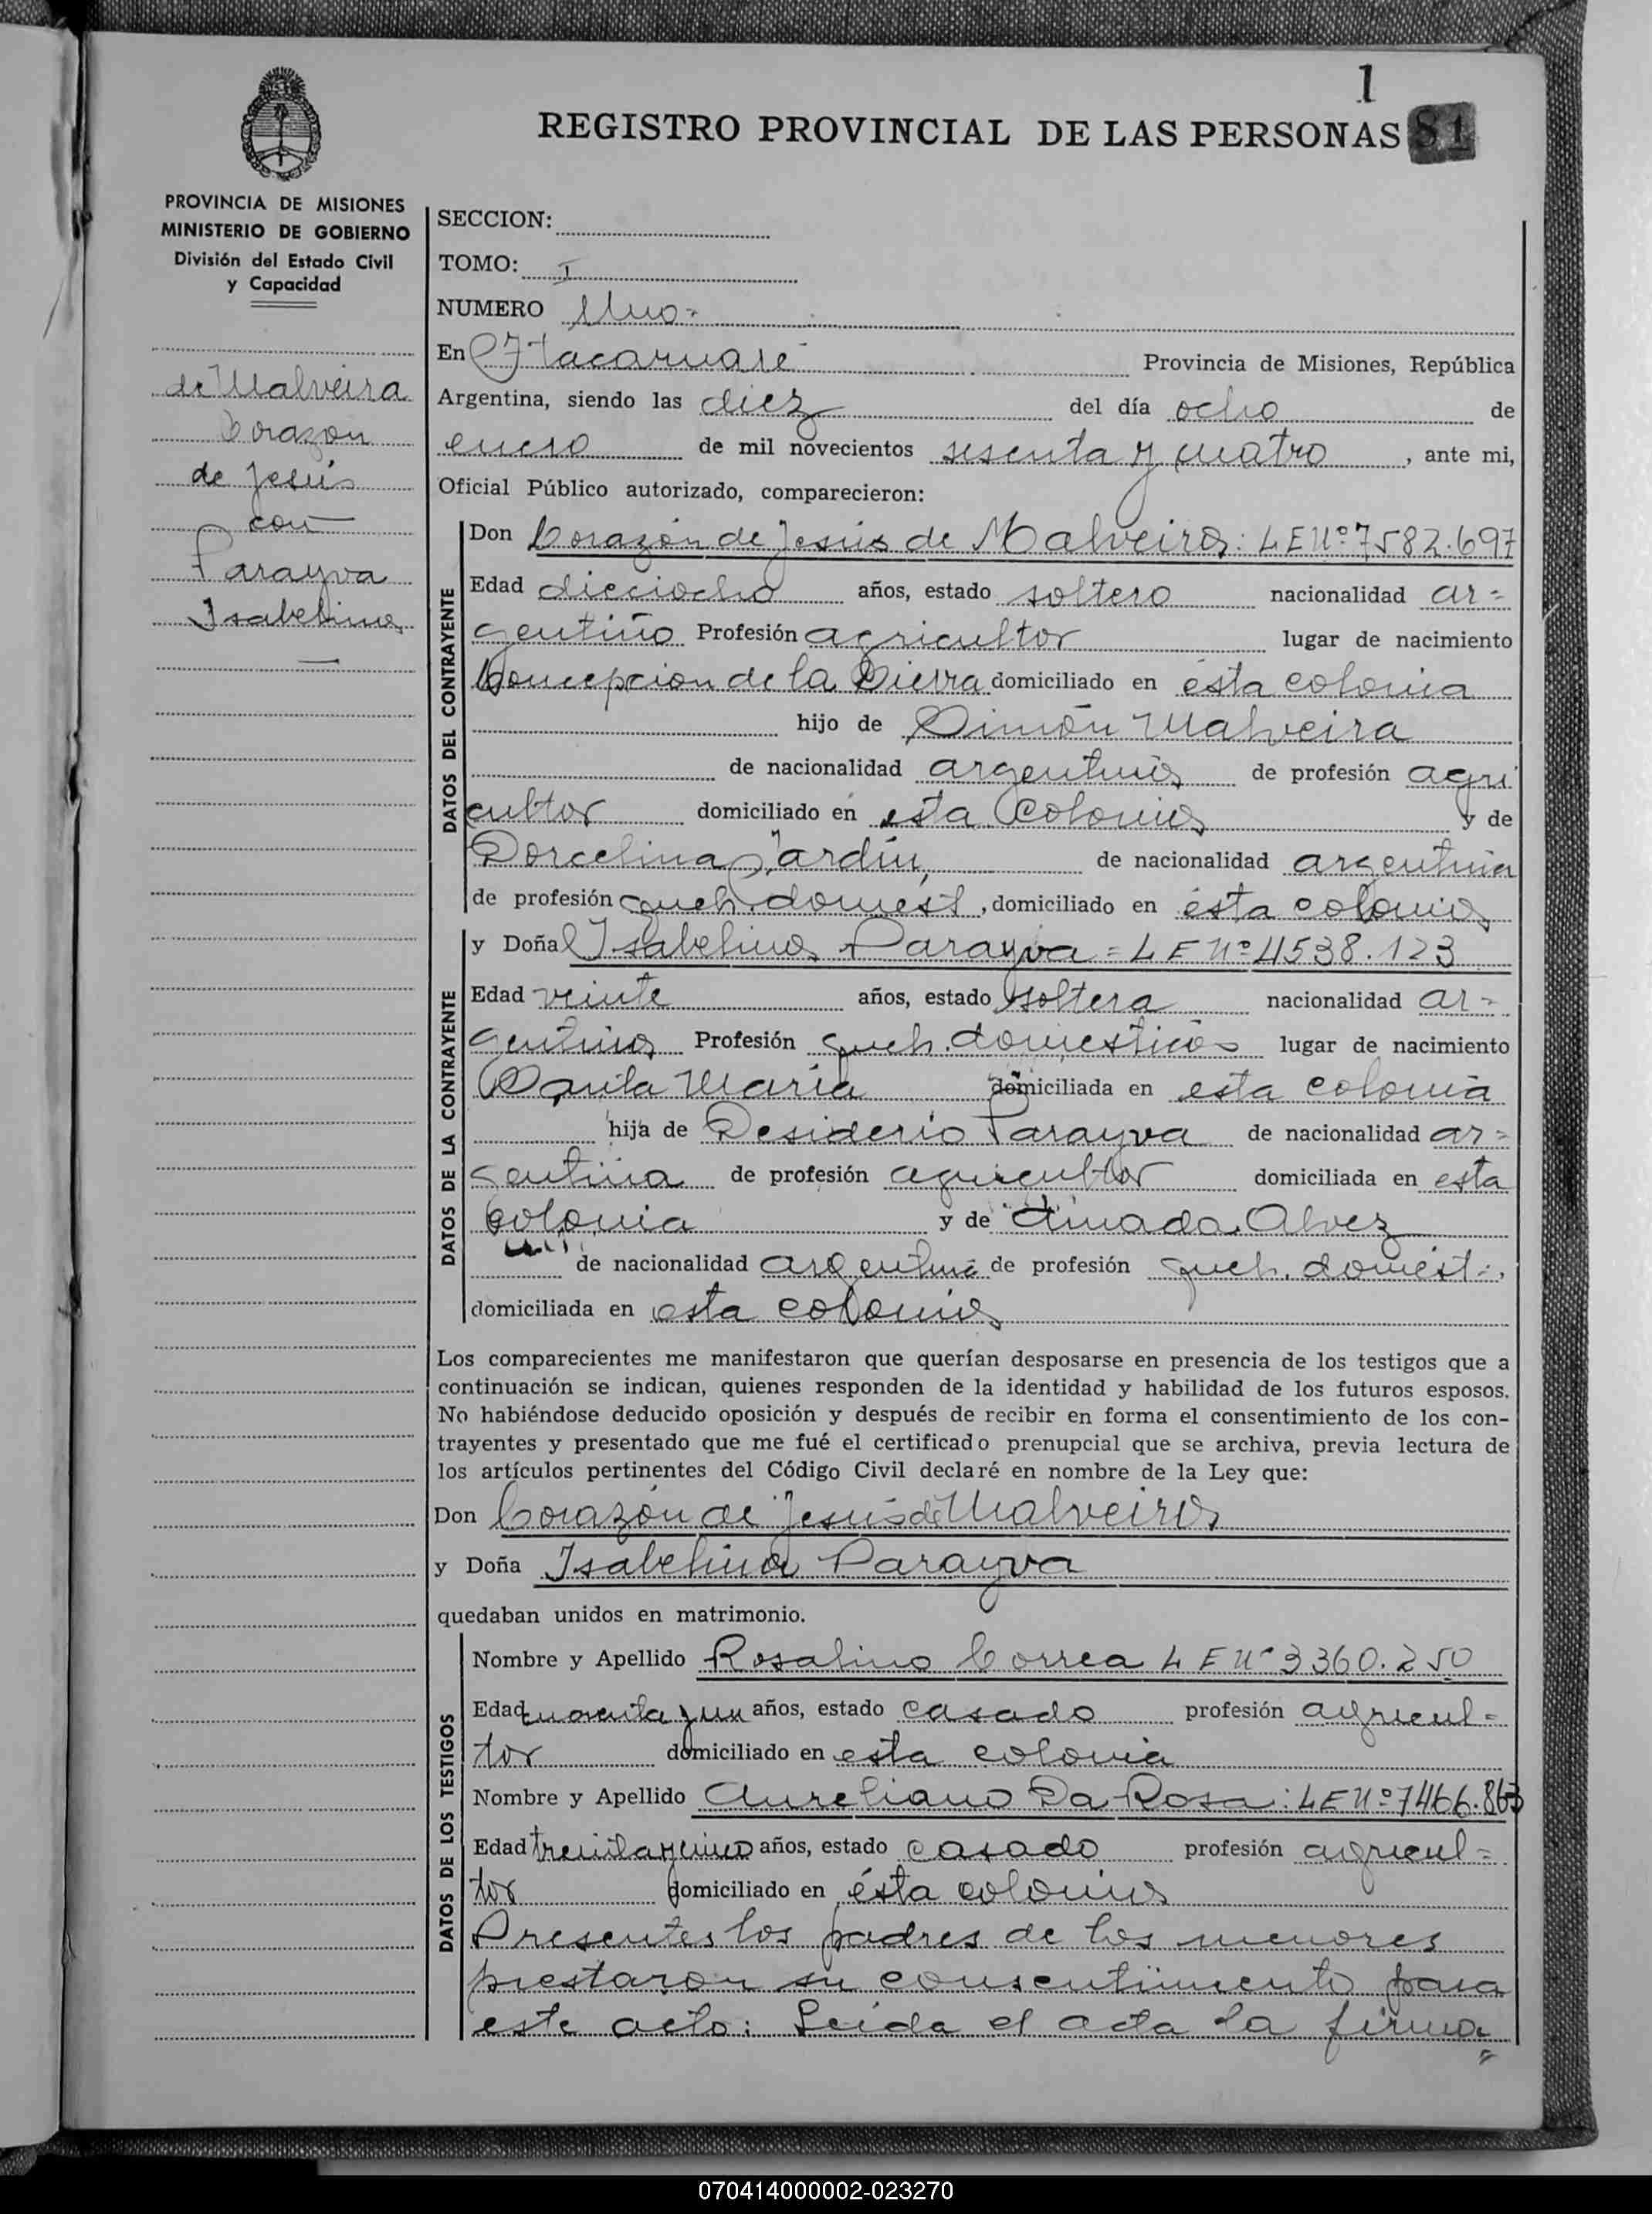 1
REGISTRO PROVINCIAL DE LAS PERSONAS 81
PROVINCIA DE MISIONES
MINISTERIO DE GOBIERNO
División del Estado Civil
y Capacidad
de Malveira
Corazon
de Jesús
con
Parayva
Isabelina
SECCION:
TOMO: I
NUMERO Uno=
En Itacaruaré Provincia de Misiones, República
Argentina, siendo las diez del día ocho de
enero de mil novecientos sesenta y cuatro, ante mi,
Oficial Público autorizado, comparecieron:
DATOS DEL CONTRAYENTE
Don Corazón de Jesús de Malveira: LE Nº 7582.697
Edad dieciocho años, estado soltero nacionalidad ar=
gentino Profesión agricultor lugar de nacimiento
Concepcion de la Sierra domiciliado en ésta colonia
hijo de Simón Malveira
de nacionalidad argentina de profesión agri
cultor domiciliado en esta Colonia y de
Dorcelina Jardin, de nacionalidad argentina
de profesión queh. domést, domiciliado en ésta colonia
DATOS DE LA CONTRAYENTE
y Doña Isabelina Parayva = LE Nº 4538.123
Edad veinte años, estado soltera nacionalidad ar=
gentina Profesión queh. domesticos lugar de nacimiento
Santa María domiciliada en esta colonia
hija de Desiderio Parayva de nacionalidad ar=
gentina de profesión agricultor domiciliada en esta
colonia y de Amada Alvez
de nacionalidad argentina de profesión queh. domést.
domiciliada en esta colonia
Los comparecientes me manifestaron que querían desposarse en presencia de los testigos que a
continuación se indican, quienes responden de la identidad y habilidad de los futuros esposos.
No habiéndose deducido oposición y después de recibir en forma el consentimiento de los con-
trayentes y presentado que me fué el certificado prenupcial que se archiva, previa lectura de
los artículos pertinentes del Código Civil declaré en nombre de la Ley que:
Don Corazón de Jesús de Malveira
y Doña Isabelina Parayva
quedaban unidos en matrimonio.
DATOS DE LOS TESTIGOS
Nombre y Apellido Rosalino Correa LE Nº 3360.250
Edad cuarenta y un años, estado casado profesión agricul=
tor domiciliado en esta colonia
Nombre y Apellido Aureliano Da Rosa: LE Nº 7466.863
Edad treinta y cinco años, estado casado profesión agricul=
tor domiciliado en ésta colonia
Presentes los padres de los menores
prestaron su consentimiento para
este acto: Leida el acta la firma
070414000002-023270